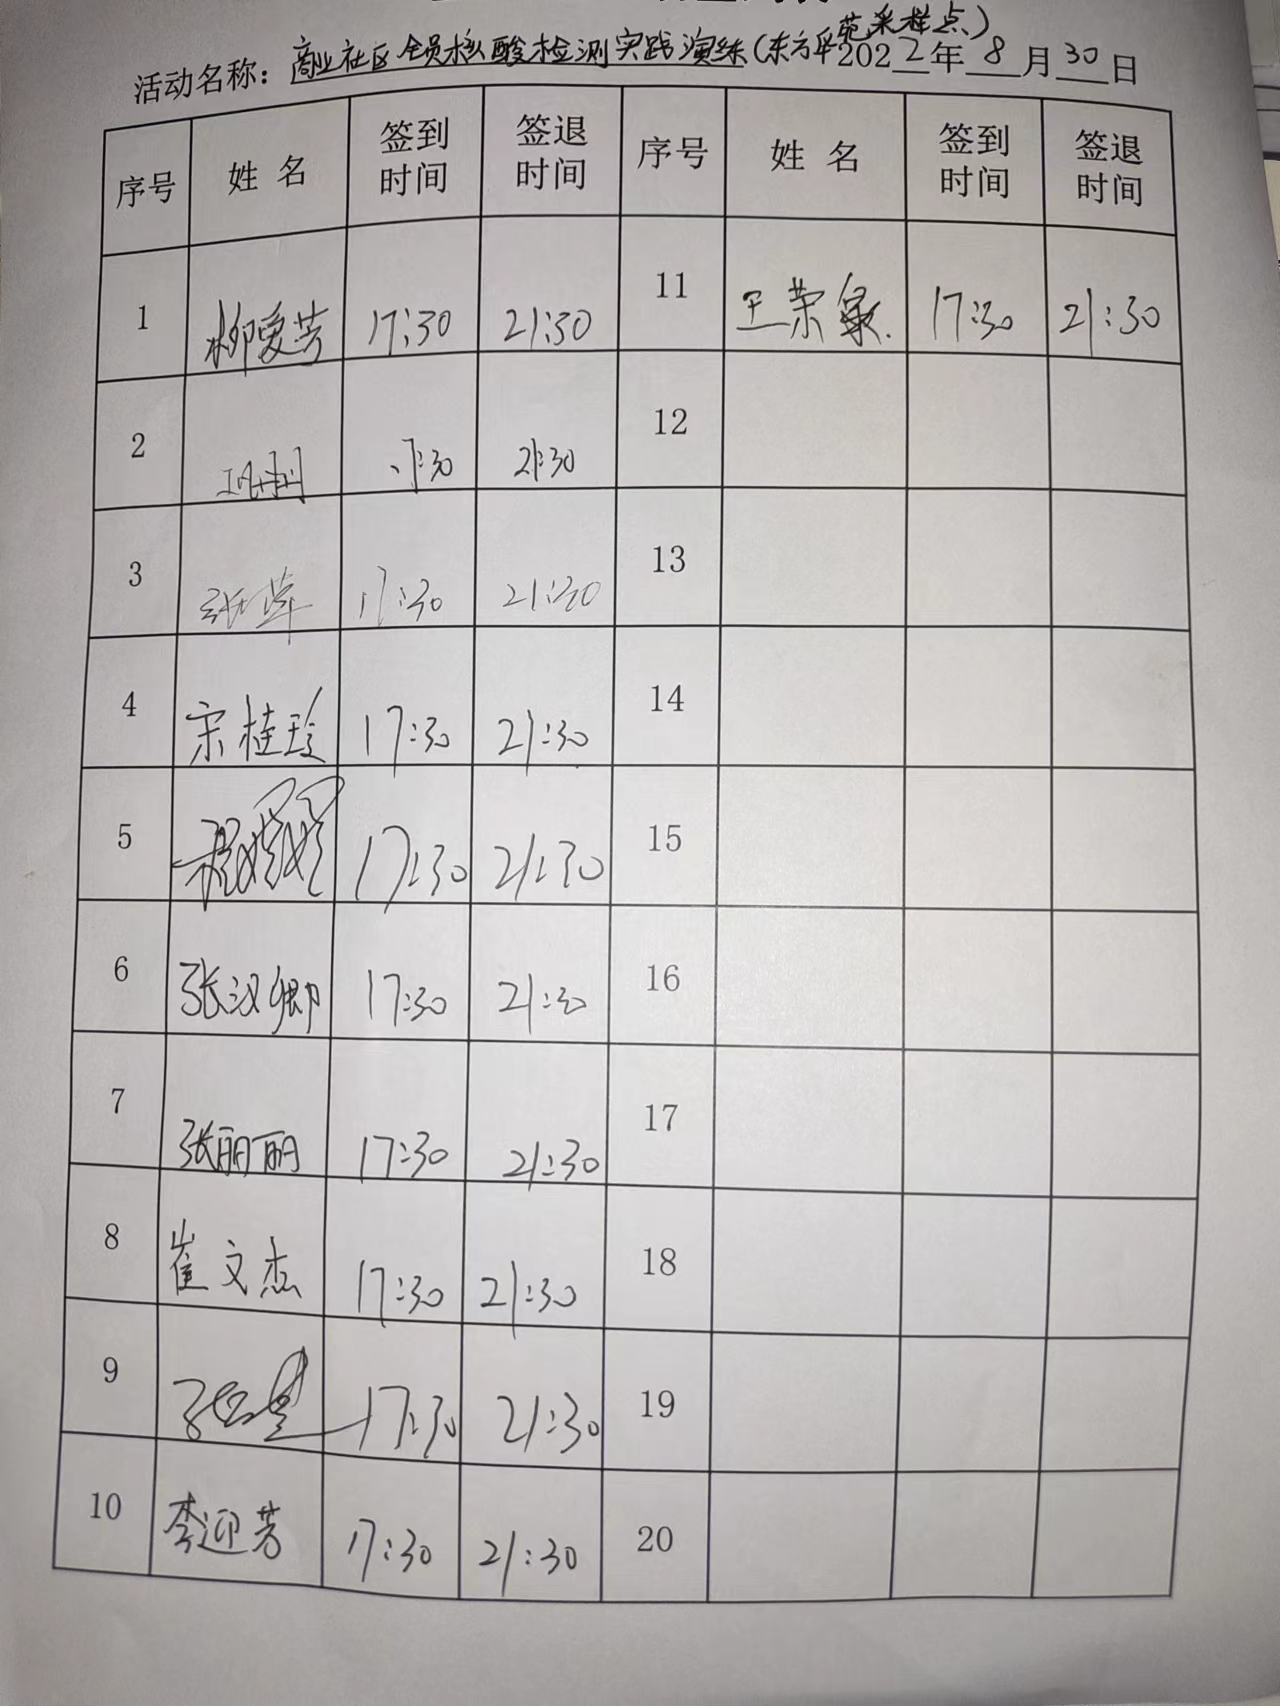 活动名称：商业社区全员核酸检测实践演练（东方 采样点）2022年8月30日
序号 姓名 签到时间 签退时间 序号 姓名 签到时间 签退时间
1 柳爱芳 17:30 21:30 11 王荣 17:30 21:30
2 17:30 21:30 12
3 张萍 17:30 21:30 13
4 宋桂玲 17:30 21:30 14
5 17:30 21:30 15
6 张汉卿 17:30 21:30 16
7 张丽丽 17:30 21:30 17
8 崔文杰 17:30 21:30 18
9 17:30 21:30 19
10 李迎芳 17:30 21:30 20